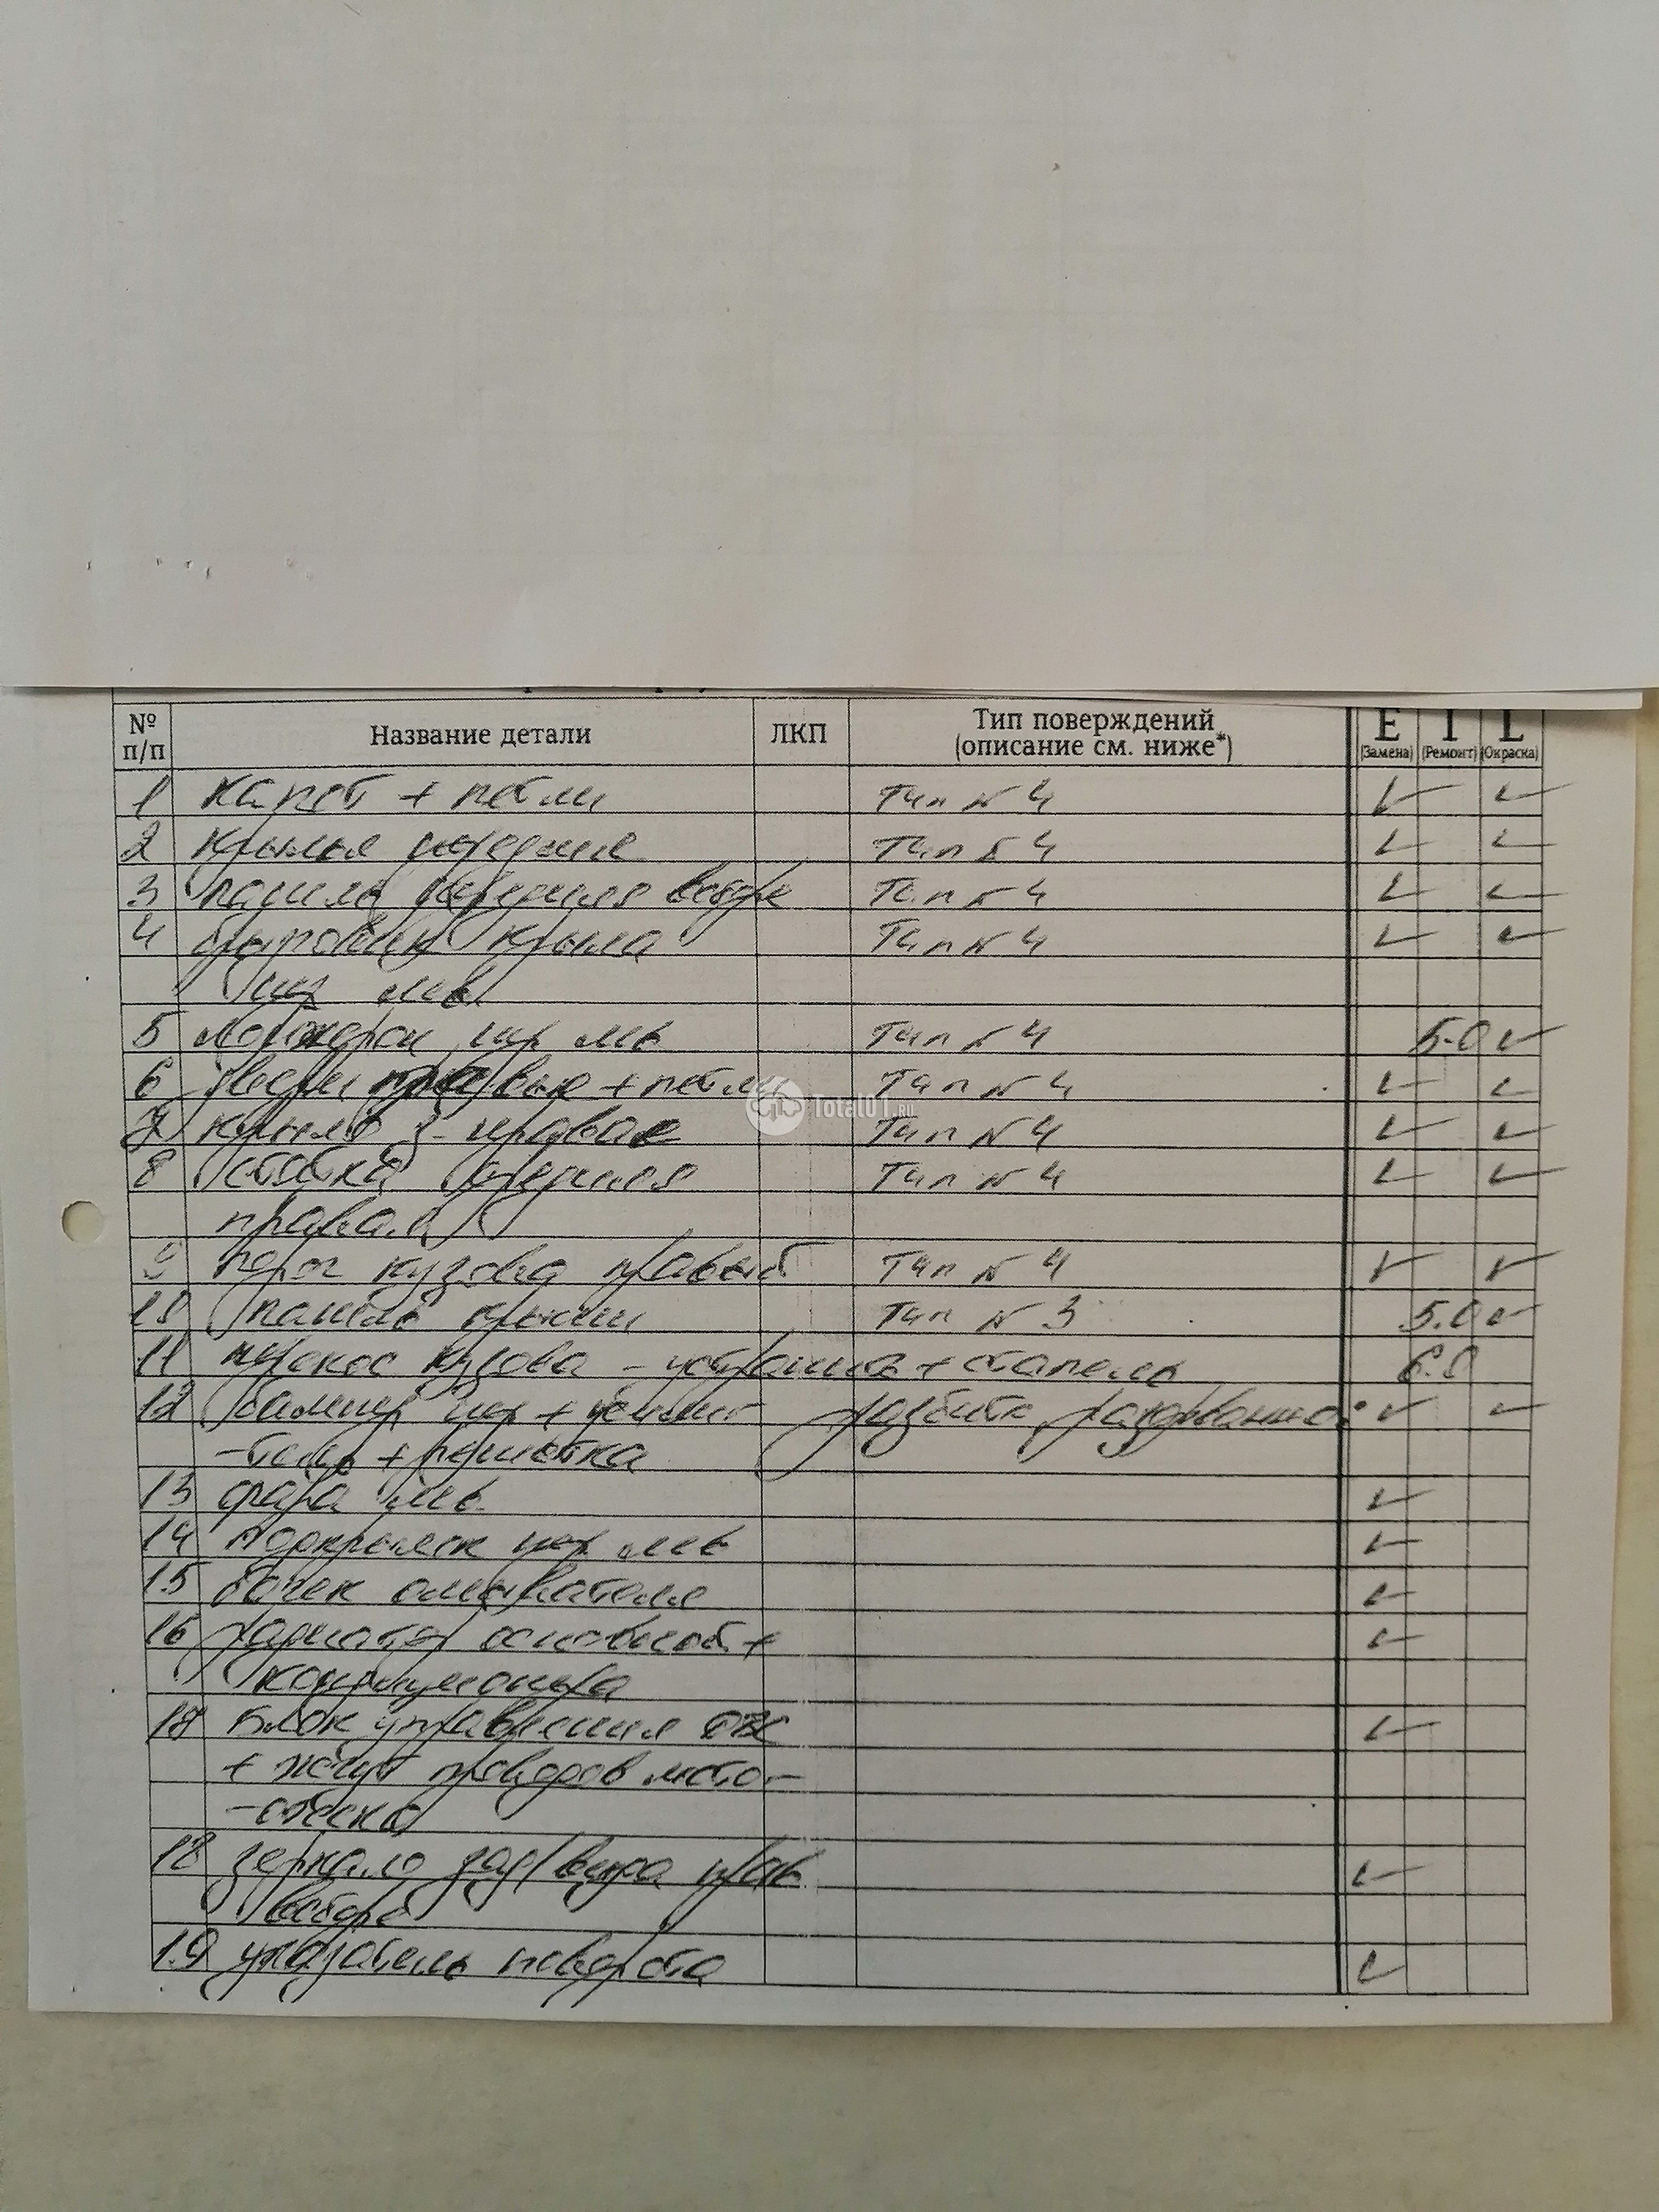 № п/п Название детали ЛКП Тип поверждений (описание см. ниже*) E (Замена) I (Ремонт) L (Окраска)
1 капот + петли Тип № 4 ✓ ✓
2 крылья передние Тип № 4 ✓ ✓
3 панель передняя в сборе Тип № 4 ✓ ✓
4 брызговик крыла Тип № 4 ✓ ✓
пер лев
5 лонжерон пер лев Тип № 4 5.0 ✓
6 двери правые + петли Тип № 4 ✓ ✓
7 крыло з. правое Тип № 4 ✓ ✓
8 стойка средняя Тип № 4 ✓ ✓
правая
9 порог кузова правый Тип № 4 ✓ ✓
10 панель крыши Тип № 3 5.0 ✓
11 перекос кузова - устранить + стапель 6.0
12 бампер пер + усили- разбит, разорванно ✓ ✓
-тель + решетка
13 фара лев ✓
14 подкрылок пер лев ✓
15 бачек омывателя ✓
16 радиатор основной + ✓
кондиционера
17 Блок управления ДВС ✓
+ жгут проводов мото-
-отсека
18 зеркало зад/вида прав ✓
в сборе
19 указатель поворота ✓
Total01.RU